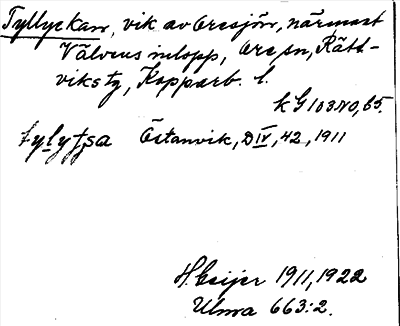 Tyllyckan, vik av Oresjön, närmast
Välveus inlopp, Ore sn, Rätt-
viks tg, Kopparb. l.
k G 103 NO, 65.
tylytsa Östanvik, D IV, 42, 1911
H. Geijer 1911, 1922
Ulma 663:2.